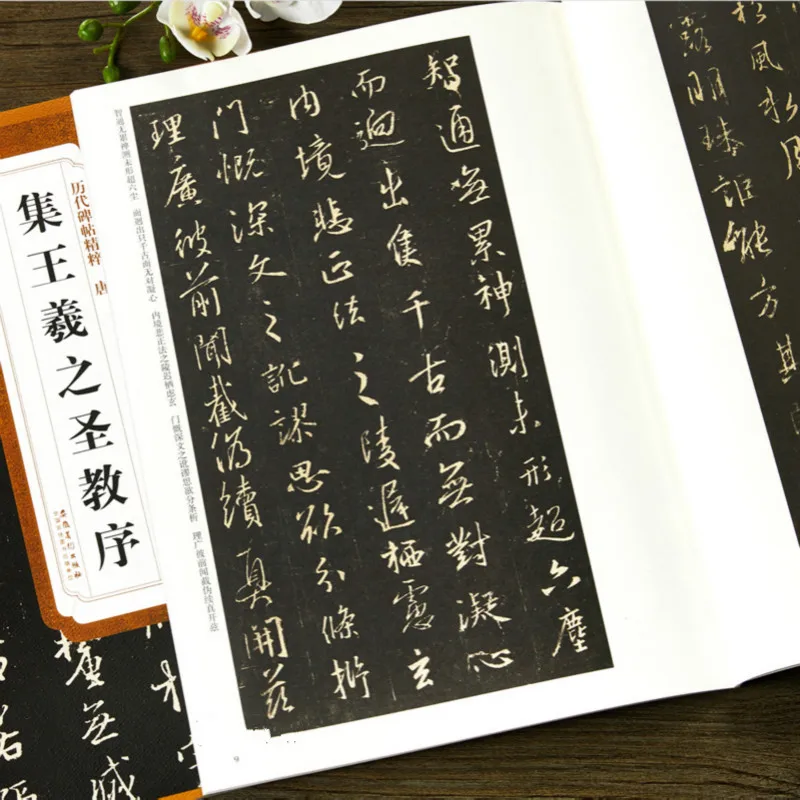 历代碑帖精粹 唐
集王羲之圣教序
安徽美术出版社
智通無累神測未形超六塵
而迥出隻千古而無對凝心
内境悲正法之陵遲栖慮玄
门慨深文之訛謬思欲分條析
理廣彼前聞截偽續真開茲
智通无累神测未形超六尘 而迥出只千古而无对凝心 内境悲正法之陵迟栖虑玄 门慨深文之讹谬思欲分条析 理广彼前闻截伪续真开兹
9
松風水月
露明珠詎能方其
無滅